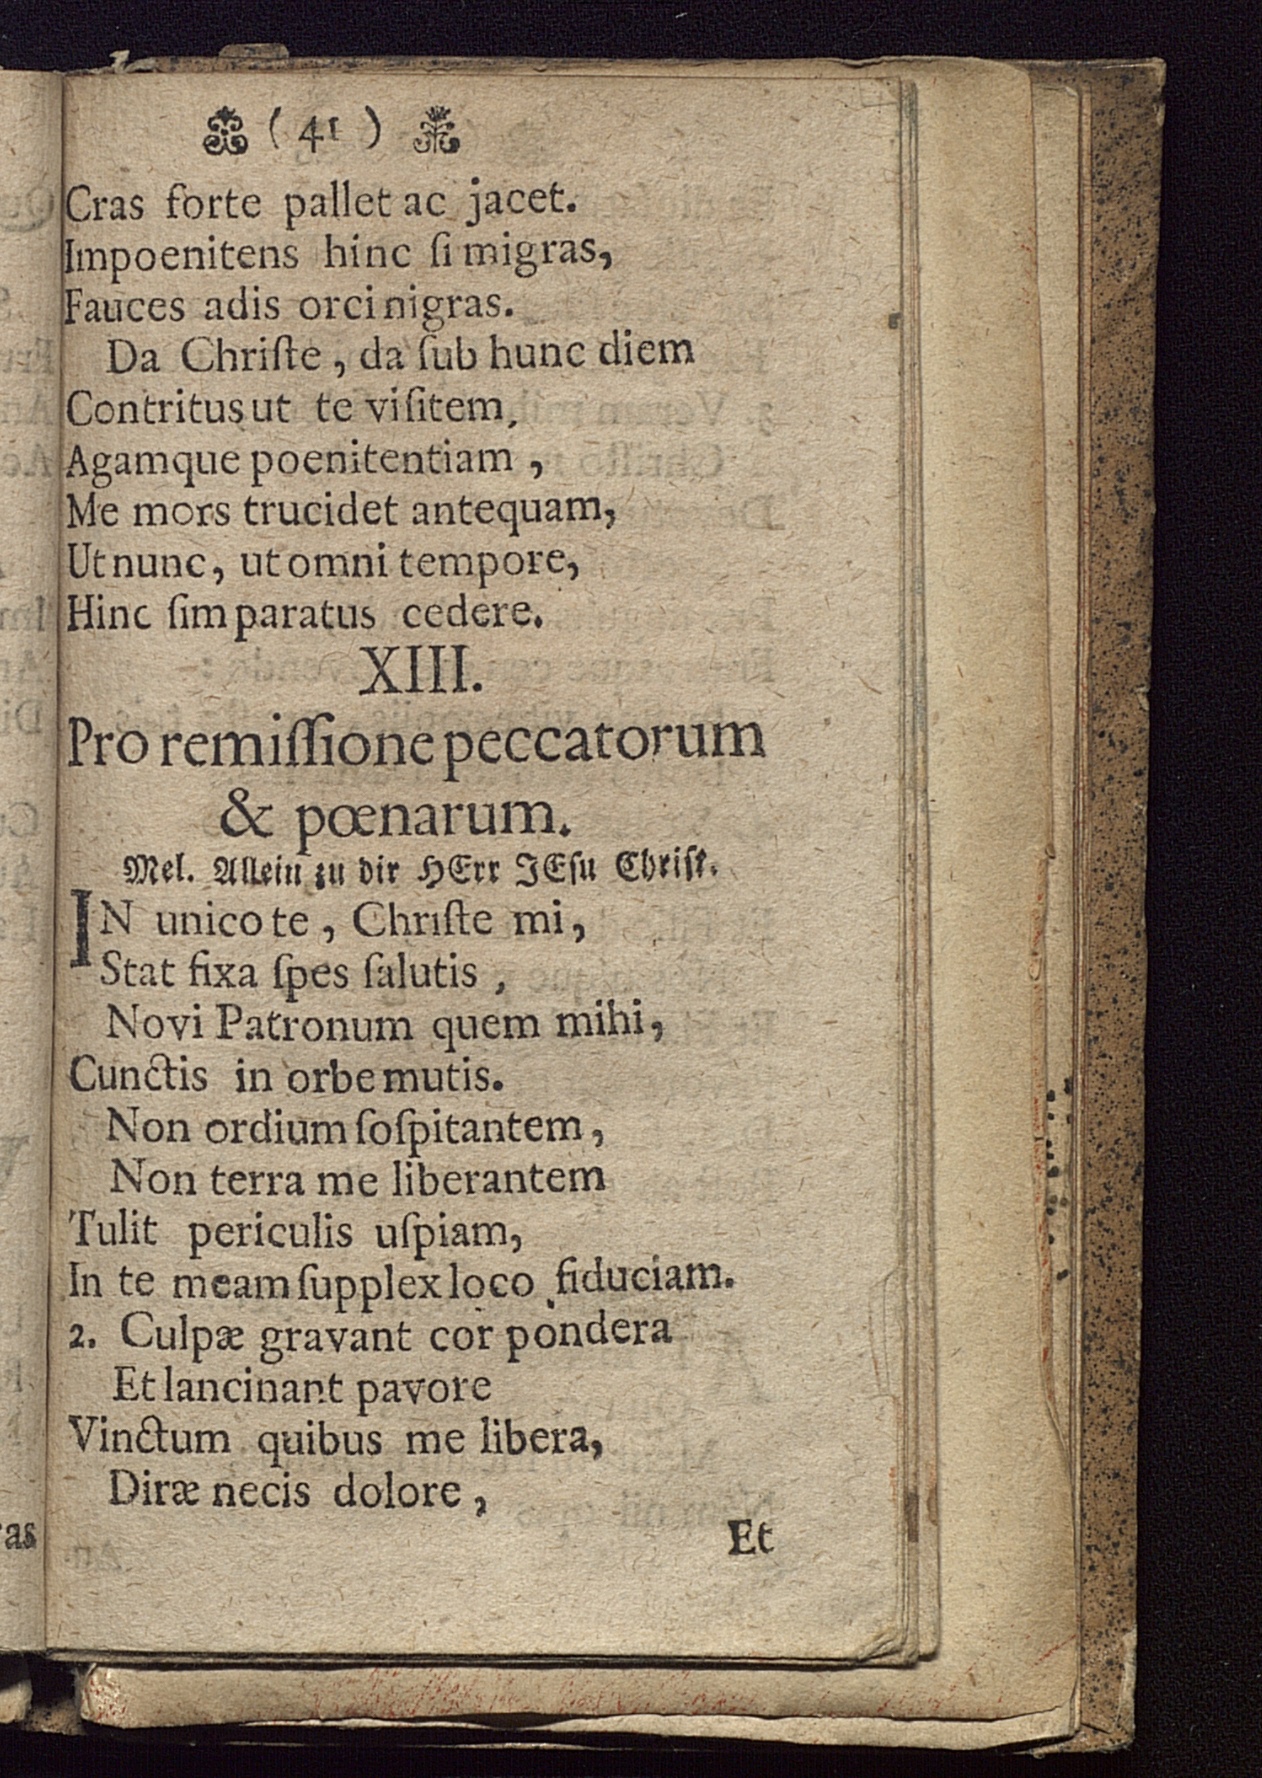 ( 41 )
Cras forte pallet ac jacet.
Impoenitens hinc ſi migras,
Fauces adis orci nigras.
Da Chriſte, da ſub hunc diem
Contritus ut te viſitem,
Agamque poenitentiam,
Me mors trucidet antequam,
Ut nunc, ut omni tempore,
Hinc ſim paratus cedere.
XIII.
Pro remiſſione peccatorum
& pœnarum.
Mel. Allein zu dir HErr JEſu Chriſt.
IN unico te, Chriſte mi,
Stat fixa ſpes ſalutis,
Novi Patronum quem mihi,
Cunctis in orbe mutis.
Non ordium ſoſpitantem,
Non terra me liberantem
Tulit periculis uſpiam,
In te meam ſupplex loco fiduciam.
2. Culpæ gravant cor pondera
Et lancinant pavore
Vinctum quibus me libera,
Diræ necis dolore,
Et